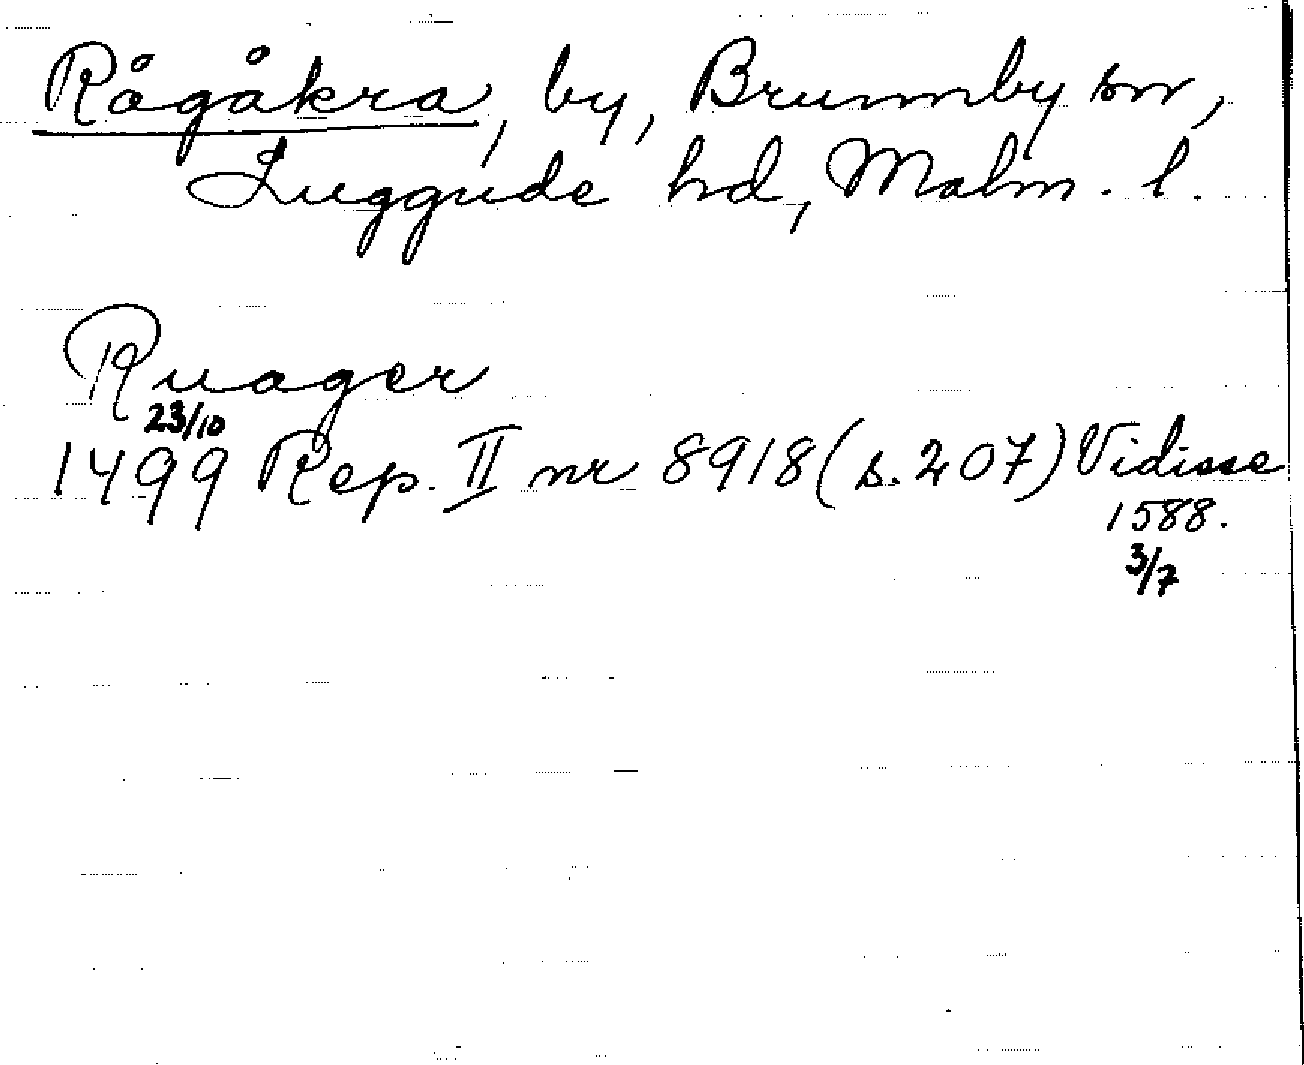 Rågåkra, by, Brunnby sn,
Luggude hd, Malm. l.
Ruager
23/10
1499 Rep. II nr 8918 (s. 207) Vidisse
1588.
3/7